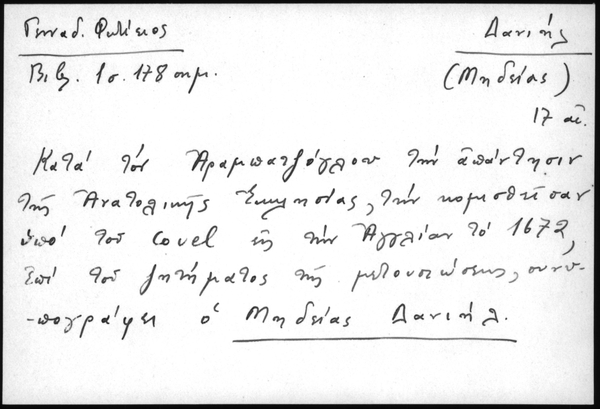 Γενναδ. Φωτίειος
Δανιήλ
Βιβλ. 1σ. 178 σημ.
(Μηδείας)
17 αἰ.
Κατά τόν Ἀραμπατζόγλου τήν ἀπάντησιν
τῆς Ἀνατολικῆς Ἐκκλησίας, τήν κομισθεῖσαν
ὑπό τοῦ Covel εἰς τήν Ἀγγλίαν τό 1672,
ἐπί τοῦ ζητήματος τῆς μετουσιώσεως, συνυ-
-πογράφει ὁ Μηδείας Δανιήλ.